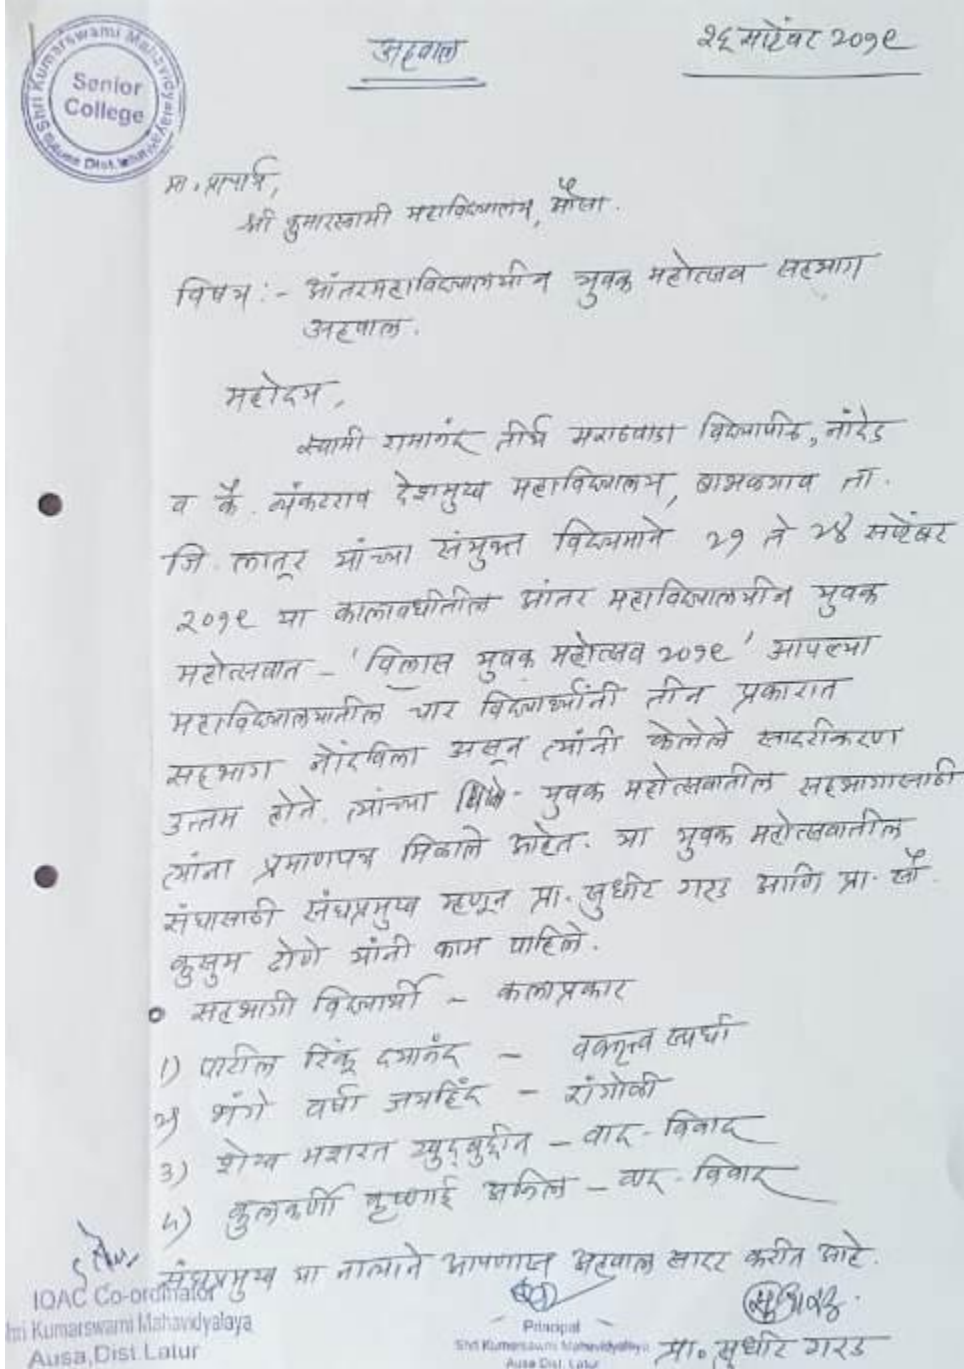 Shri Kumarswami Mahavidyalaya
Senior
College
Ausa Dist. Latur
अहवाल
२६ सप्टेंबर २०१९
मा. प्राचार्य,
श्री कुमारस्वामी महाविद्यालय, औसा.
विषय :- आंतरमहाविद्यालयीन युवक महोत्सव सहभाग
अहवाल.
महोदय,
स्वामी रामानंद तीर्थ मराठवाडा विद्यापीठ, नांदेड
व कै. व्यंकटराव देशमुख महाविद्यालय, बाभळगाव ता.
जि. लातूर यांच्या संयुक्त विद्यमाने २१ ते २४ सप्टेंबर
२०१९ या कालावधीतील आंतर महाविद्यालयीन युवक
महोत्सवात - 'विलास युवक महोत्सव २०१९' आपल्या
महाविद्यालयातील चार विद्यार्थ्यांनी तीन प्रकारात
सहभाग नोंदविला असून त्यांनी केलेले सादरीकरण
उत्तम होते. त्यांच्या युवक महोत्सवातील सहभागासाठी
त्यांना प्रमाणपत्र मिळाले आहेत. या युवक महोत्सवातील
संघासाठी संघप्रमुख म्हणून प्रा. सुधीर गरड आणि प्रा. सौ.
कुसुम टोणे यांनी काम पाहिले.
सहभागी विद्यार्थी - कलाप्रकार
१) पाटील रिंकू दयानंद - वक्तृत्व स्पर्धा
२) भंगे वर्षा जयहिंद - रांगोळी
३) शेख मशरत - वाद-विवाद
४) कुलकर्णी कृष्णाई अनिल - वाद-विवाद
संघप्रमुख या नात्याने आपणास अहवाल सादर करीत आहे.
IQAC Co-ordinator
Shri Kumarswami Mahavidyalaya
Ausa, Dist. Latur
Principal
Shri Kumarswami Mahavidyalaya
Ausa Dist. Latur
प्रा. सुधीर गरड